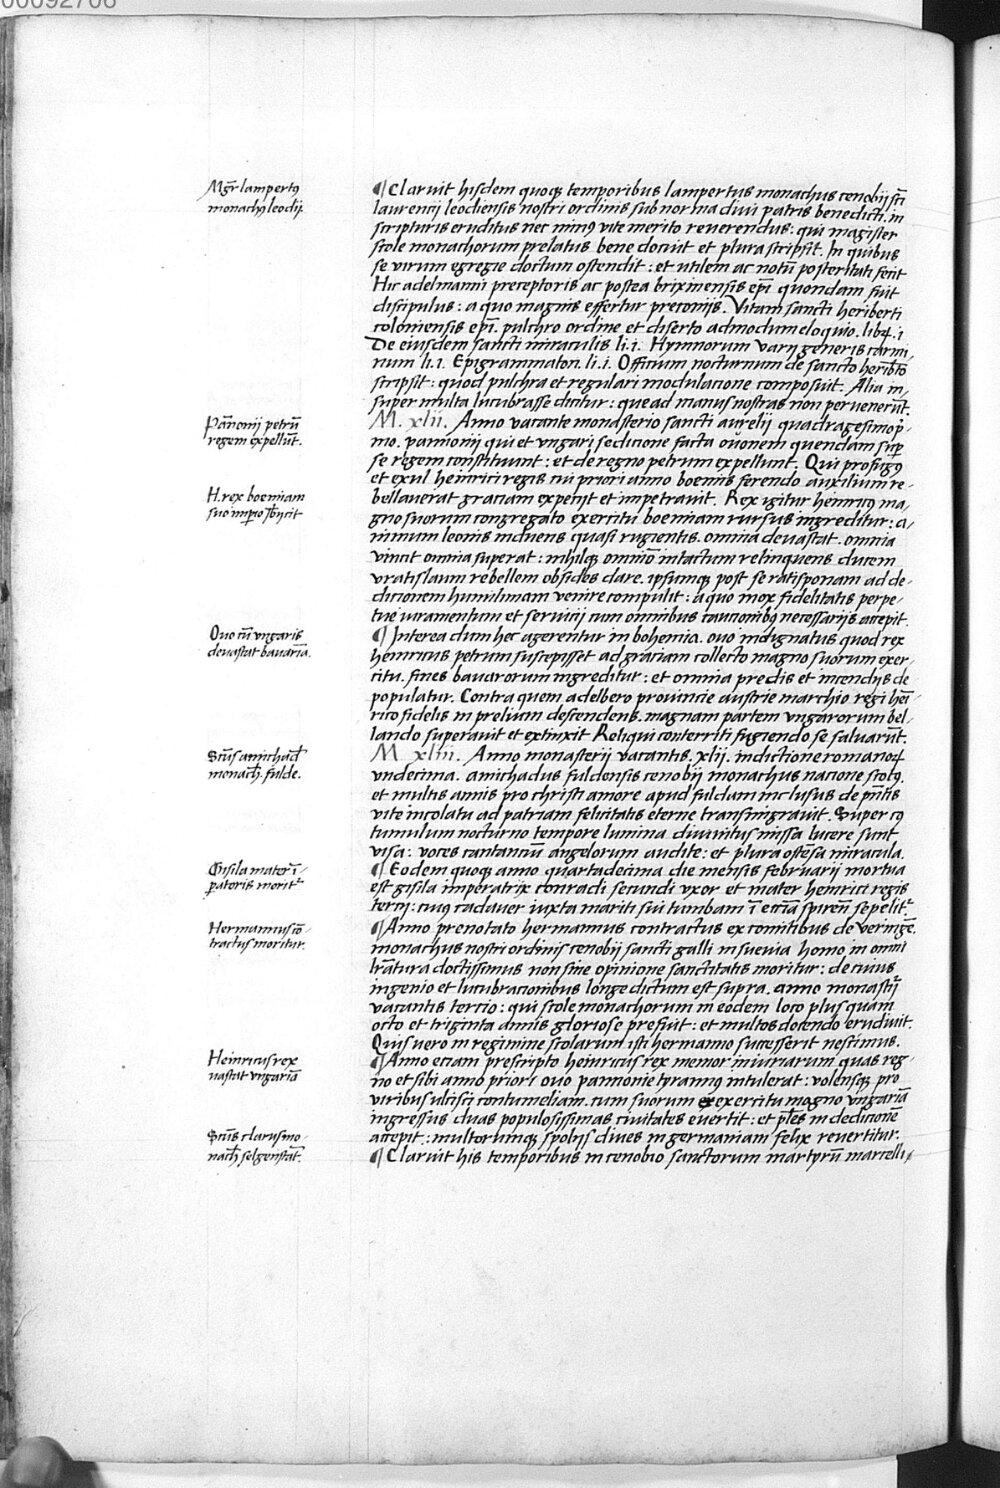 00092706
Mgr̄ lampertꝯ
monachꝯ leodij.
¶ Claruit hisdem quoqꝫ temporibus lampertus monachus cenobij sc̄ti
laurencij leodiensis nostri ordinis sub norma diui patris benedicti. in
scripturis eruditus nec minꝯ vite merito reuerendus: qui magister
scole monachorum prelatus bene docuit et plura scripsit. In quibus
se virum egregie doctum ostendit: et vtilem ac notū posteritati fecit
Hic adelmanni preceptoris ac postea brixinensis epī quondam fuit
discipulus: a quo magnis effertur preconijs. Vitam sancti heriberti
coloniensis epī. pulchro ordine et diserto admodum eloquio. libꝝ. i
De eiusdem sancti miraculis li. i. Hymnorum varij generis carmi,
num li. i. Epigrammaton. li. i. Officium nocturnum de sancto heribtō
scripsit: quod pulchra et regulari modulacione composuit. Alia in,
super multa lucubrasse dicitur: que ad manus nostras non peruenerūt.
Pānonij petrū
regem expellūt.
M. xlii. Anno vacante monasterio sancti aurelij quadragesimo p̄,
mo. pannonij qui et vngari sedicione facta ouonem quendam suꝑ
se regem constituunt: et de regno petrum expellunt. Qui profugꝯ
et exul heinrici regis cui priori anno boemis ferendo auxilium re,
H. rex boemiam
suo imꝑio sb̄ijcit
bellauerat graciam expetijt et impetrauit. Rex igitur heinricꝯ ma,
gno suorum congregato exercitu boemiam rursus ingreditur: a,
nimum leonis induens quasi rugientis. omnia deuastat. omnia
vincit omnia superat: nihilqꝫ omnīo intactum relinquens ducem
vratislaum rebellem obsides dare. ipsumqꝫ post se ratisponam ad de,
dicionem humilimam venire compulit: a quo mox fidelitatis perpe,
tue iuramentum et seruicij cum omnibus caucionibꝯ necessarijs accepit.
Ouo cū vngaris
deuastat bauariā.
¶ Interea dum hec agerentur in bohemia. ouo indignatus quod rex
heinricus petrum suscepisset ad graciam collecto magno suorum exer,
citu. fines bauarorum ingreditur: et omnia predis et incendijs de
populatur. Contra quem adelbero prouincie austrie marchio regi hei̅,
rico fidelis in prelium descendens. magnam partem vngarorum bel,
lando superauit et extinxit Reliqui conterriti fugiendo se saluarūt.
Sctūs amichadꝰ
monach̄. fulde.
M xliii. Anno monasterij vacantis. xlii. indictione romanoꝝ
vndecima. amichadus fuldensis cenobij monachus nacione scotꝯ.
et multis annis pro christi amore apud fuldam inclusus de pn̄tis
vite incolatu ad patriam felicitatis eterne transmigrauit. Super cꝯ
tumulum nocturno tempore lumina diuinitus missa lucere sunt
visa: voces cantanciū angelorum audite: et plura ostēsa miracula.
Gisila mater ī-
ꝑatoris moritʳ
¶ Eodem quoqꝫ anno quartadecima die mensis februarij mortua
est gisila imperatrix conradi secundi vxor et mater heinrici regis
tercij: cuiꝯ cadauer iuxta mariti sui tumbam ī ecc̄ia spiren̄ sepelitʳ.
Hermannus cō-
tractus moritur.
¶ Anno prenotato hermannus contractus ex comitibus de veringē.
monachus nostri ordinis cenobij sancti galli in sueuia homo in omni
lr̄atura doctissimus non sine opinione sanctitatis moritur: de cuius
ingenio et lucubracionibus longe dictum est supra. anno monastīj
vacantis tercio: qui scole monachorum in eodem loco plus quam
octo et triginta annis gloriose prefuit: et multos docendo erudiuit.
Quis uero in regimine scolarum isti hermanno successerit nescimus.
Heinricus rex
vastat vngariā
¶ Anno eciam prescripto heinricus rex memor iniuriarum quas reg-
no et sibi anno priori ouo pannonie tyrannꝯ intulerat: volensqꝫ pro
viribus ulcisci contumeliam. cum suorum exercitu magno vngariā
ingressus duas populosissimas ciuitates euertit: et pl̄es in dedicionē
Sctūs clarus mo-
nach̄ selgenstat̄.
accepit: multorumqꝫ spolijs diues in germaniam felix reuertitur.
¶ Claruit his temporibus in cenobio sanctorum martyrū marcelli,